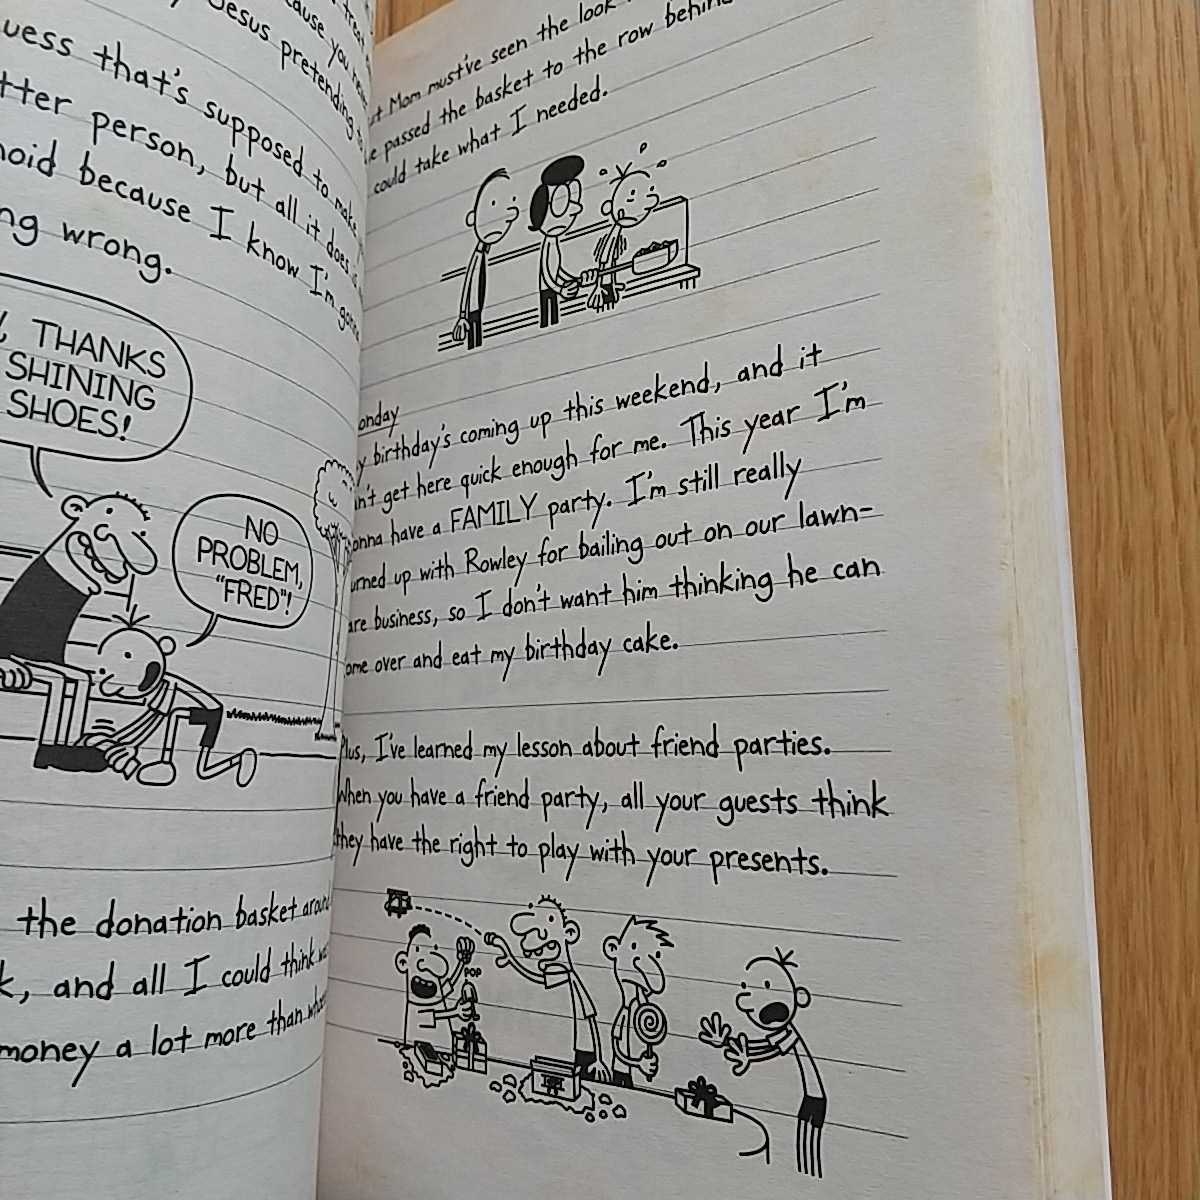 Jesus pretending
uess that's supposed to make
tter person, but all it does is
noid because I know I'm gonna
ng wrong.
THANKS
SHINING
SHOES!
NO
PROBLEM,
"FRED"!
the donation basket around
k, and all I could think
money a lot more than
ut Mom must've seen the look
passed the basket to the row behind
could take what I needed.
onday
y birthday's coming up this weekend, and it
n't get here quick enough for me. This year I'm
onna have a FAMILY party. I'm still really
urned up with Rowley for bailing out on our lawn-
are business, so I don't want him thinking he can
ome over and eat my birthday cake.
Plus, I've learned my lesson about friend parties.
When you have a friend party, all your guests think
they have the right to play with your presents.
POP